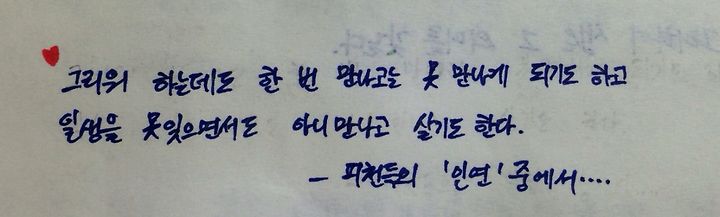 그리워 하는데도 한 번 만나고는 못 만나게 되기도 하고
일생을 못잊으면서도 아니만나고 살기도 한다.
- 피천득의 '인연' 중에서....